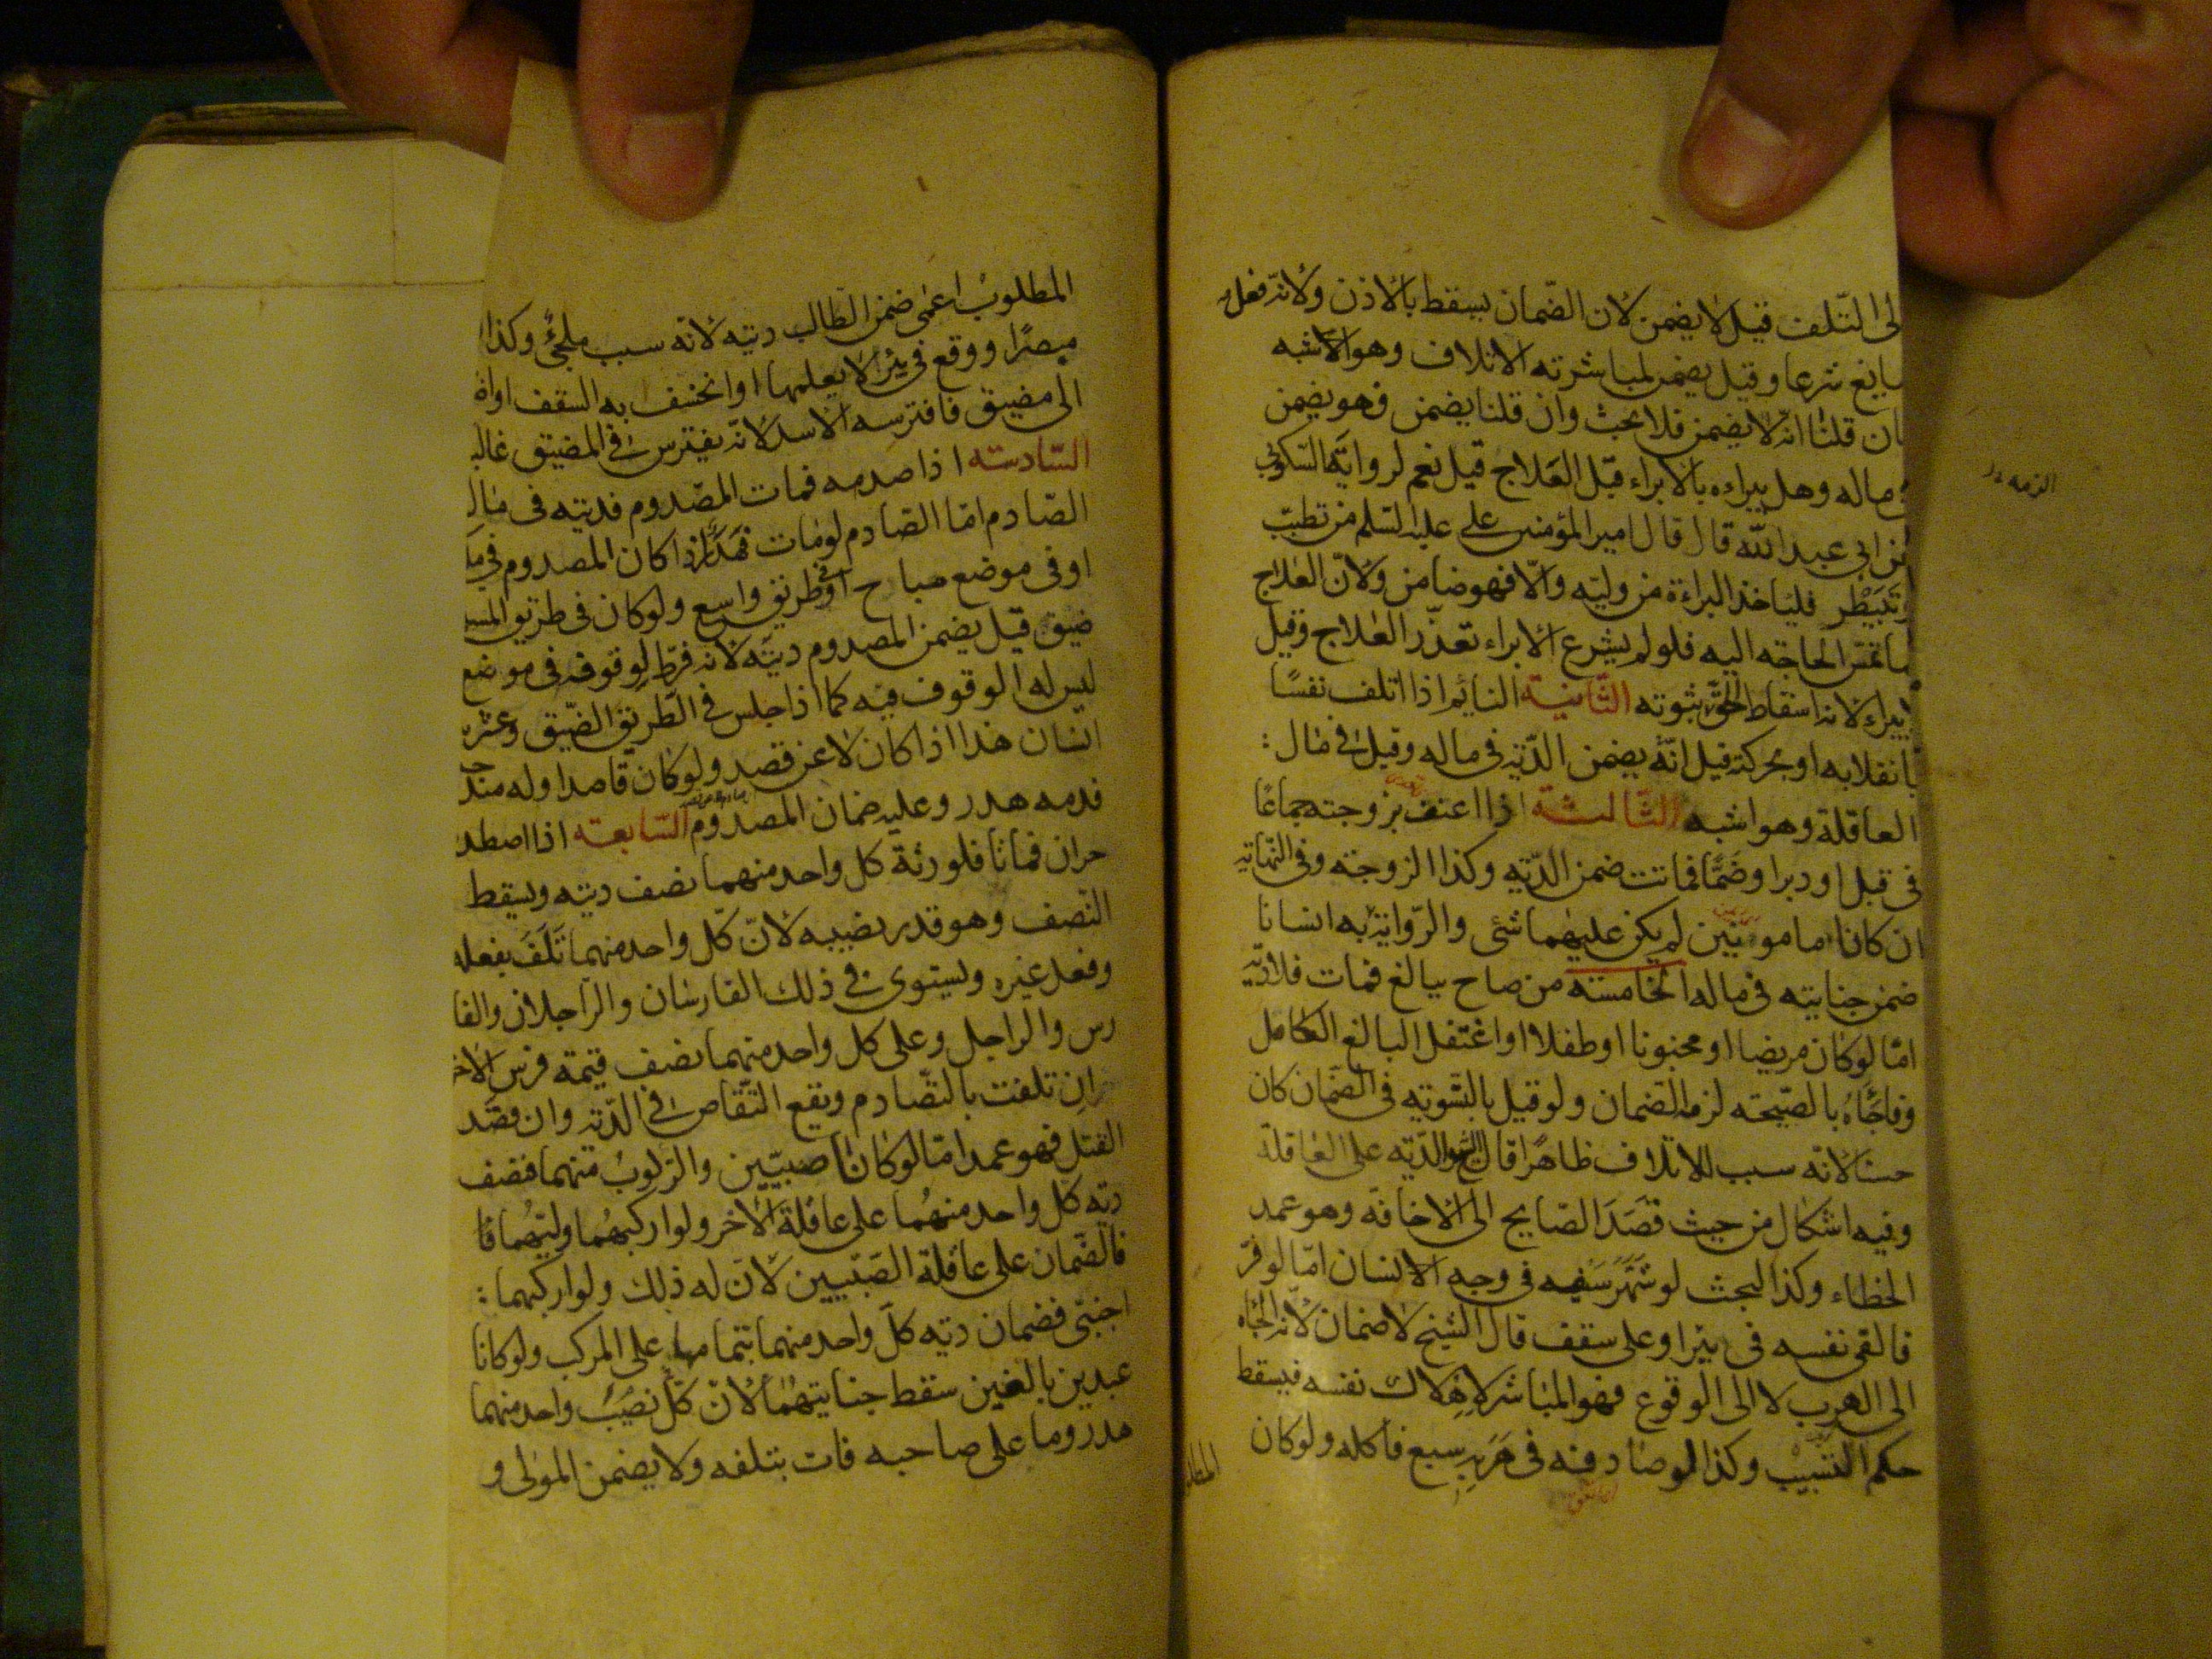 لى التلف قيل لا يضمن لان الضمان يسقط بالاذن ولانه فعل
سايغ شرعا وقيل يضمن لمباشرته الاتلاف وهو الاشبه
ان قلنا انه لا يضمن فلا بحث وان قلنا يضمن فهو يضمن
ماله وهل يبراء بالابراء قبل العلاج قيل نعم لرواية السكوني
عن ابى عبد الله قال قال امير المؤمنين على عليه السلم من تطبب
او تبيطر فلياخذ البراءة من وليه والا فهو ضامن ولان العلاج
مما تمس الحاجة اليه فلو لم يشرع الابراء تعذر العلاج وقيل
يبراء لانه اسقاط الحق ثبوته الثانية النايم اذا اتلف نفسا
بانقلابه او بحركته قيل انه يضمن الدية فى ماله وقيل فى مال :
العاقلة وهو اشبه الثالثة اذا اعنف بزوجته جماعا
فى قبل او دبر او ضما فماتت ضمن الدية وكذا الزوجة وفى النهاية
ان كانا مامونين لم يكن عليهما شئ والرواية انسانا
ضمن جنايته فى ماله الخامسة من صاح ببالغ فمات فلا دية
اما لو كان مريضا او مجنونا او طفلا او اغتفل البالغ الكامل
وفاجاه بالصيحة لزمه الضمان ولو قيل بالتسوية فى الضمان كان
حسنا لانه سبب للاتلاف ظاهرا قال الشيخ والدية على العاقلة
وفيه اشكال من حيث قصد الصايح الى الاخافة وهو عمد
الخطاء وكذا البحث لو شهر سيفه فى وجه الانسان اما لو فر
فالقى نفسه فى بئر او على سقف قال الشيخ لا ضمان لانه الجاه
الى الهرب لا الى الوقوع فهو المباشر لاهلاك نفسه فيسقط
حكم التسبيب وكذا لو صادفه فى هربه سبع فاكله ولو كان
المطلوب اعمى ضمن الطالب ديته لانه سبب ملجئ وكذا
مبصرا ووقع فى بئر لا يعلمها او انخسف به السقف او
الى مضيق فافترسه الاسد لانه يفترس فى المضيق غالبا
السادسة اذا صدمه فمات المصدوم فديته فى مال
الصادم اما الصادم لو مات فهدر اذا كان المصدوم فى
او فى موضع مباح او فى طريق واسع ولو كان فى طريق
ضيق قيل يضمن المصدوم ديته لانه فرط لوقوفه فى موضع
ليس له الوقوف فيه كما اذا جلس فى الطريق الضيق وعثر
انسان هذا اذا كان لا عن قصد ولو كان قاصدا وله مندوحة
فدمه هدر وعليه ضمان المصدوم السابعة اذا اصطدم
حران فماتا فلورثة كل واحد منهما نصف ديته ويسقط
النصف وهو قدر نصيبه لان كل واحد منهما تلف بفعله
وفعل غيره ويستوى فى ذلك الفارسان والراجلان والفا
رس والراجل وعلى كل واحد منهما نصف قيمة فرس الاخر
ان تلفت بالتصادم ويقع التقاص فى الدية وان قصد
القتل فهو عمد اما لو كانا صبيين والركوب منهما فنصف
دية كل واحد منهما على عاقلة الاخر ولو اركبهما وليهما فا
فالضمان على عاقلة الصبيين لان له ذلك ولو اركبهما :
اجنبى فضمان دية كل واحد منهما بتمامها على المركب ولو كانا
عبدين بالغين سقط جنايتهما لان كل نصيب واحد منهما
هدر وما على صاحبه فات بتلفه ولا يضمن المولى و